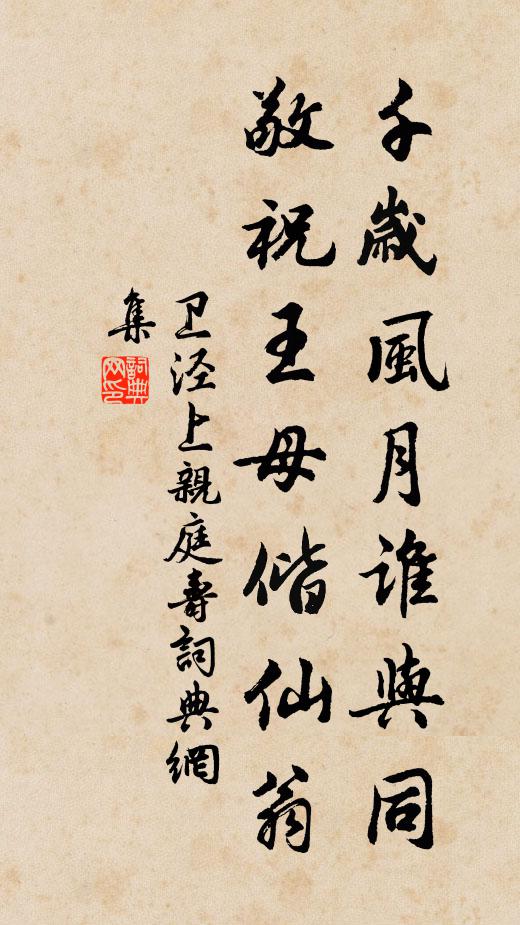 千歲風月誰與同
敬祝王母偕仙翁
卫泾上親庭壽詞典網
集
詞典
网印